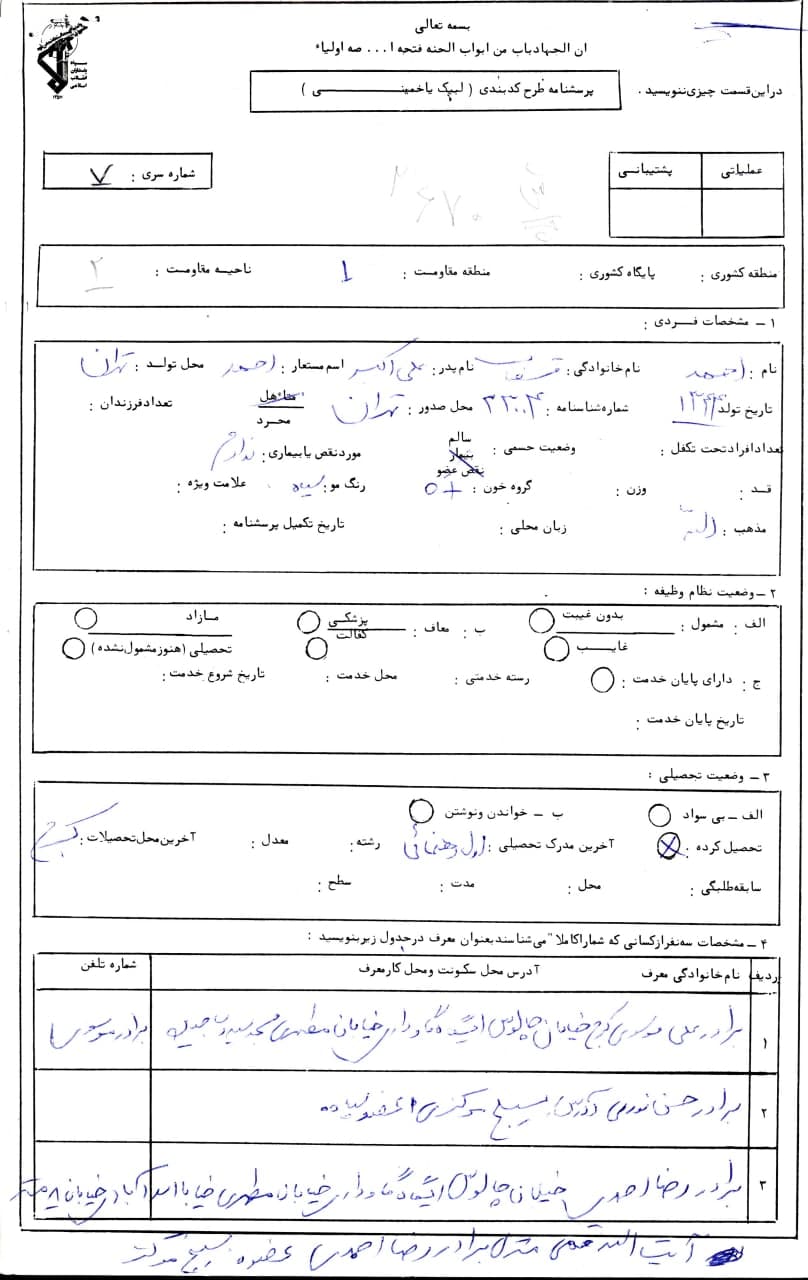 بسمه تعالی
ان الجهادباب من ابواب الجنه فتحه ا... صه اولیاء
دراین قسمت چیزی ننویسید .
پرسشنامه طرح کدبندی ( لبیک یاخمینی )
سپاه پاسداران انقلاب اسلامی
عملیاتی پشتیبانی
شماره سری : ۷
۲۶۷۰
منطقه کشوری : پایگاه کشوری : منطقه مقاومت : 1 ناحیه مقاومت : ۲
۱ - مشخصات فردی :
نام : احمد نام خانوادگی : نام پدر : علی اکبر اسم مستعار : احمد محل تولد : تهران
تاریخ تولد ۱۳۴۴ شماره شناسنامه : ۳۳۰۴ محل صدور : تهران متاهل مجرد تعداد فرزندان :
تعداد افراد تحت تکفل : وضعیت جسمی : سالم بیمار نقص عضو مورد نقص یا بیماری : ندارم
قد : وزن : گروه خون : O+ رنگ مو : سیاه علامت ویژه :
مذهب : زبان محلی : تاریخ تکمیل پرسشنامه :
۲ - وضعیت نظام وظیفه :
الف : مشمول : بدون غیبت غایب ب : معاف : پزشکی کفالت مازاد تحصیلی (هنوز مشمول نشده)
ج : دارای پایان خدمت : رسته خدمتی : محل خدمت : تاریخ شروع خدمت :
تاریخ پایان خدمت :
۳ - وضعیت تحصیلی :
الف - بی سواد ب - خواندن ونوشتن
تحصیل کرده : آخرین مدرک تحصیلی : اول راهنمائی رشته : معدل : آخرین محل تحصیلات : کرج
سابقه طلبگی : محل : مدت : سطح :
۴ - مشخصات سه نفر از کسانی که شما را کاملا" می شناسند بعنوان معرف در جدول زیر بنویسید :
ردیف نام خانوادگی معرف آدرس محل سکونت ومحل کار معرف شماره تلفن
۱ برادر علی موسوی کرج خیابان چالوس ایستگاه خیابان مطهری مسجد برادر موسوی
۲ برادر حسن نوری آدرس بسیج مرکزی عضو سپاه
۳ برادر رضا احمدی خیابان چالوس ایستگاه خیابان مطهری خیابان ۸ متری
آیت الله منزل برادر رضا احمدی عضو بسیج مرکز